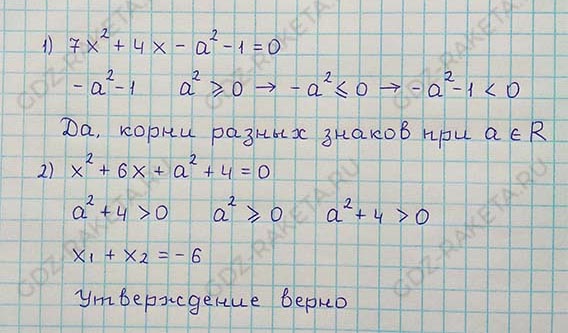 1) 7x² + 4x - a² - 1 = 0
-a² - 1   a² ⩾ 0 → -a² ⩽ 0 → -a² - 1 < 0
Да, корни разных знаков при a ∈ R
2) x² + 6x + a² + 4 = 0
a² + 4 > 0   a² ⩾ 0   a² + 4 > 0
x₁ + x₂ = -6
Утверждение верно
GDZ-RAKETA.RU